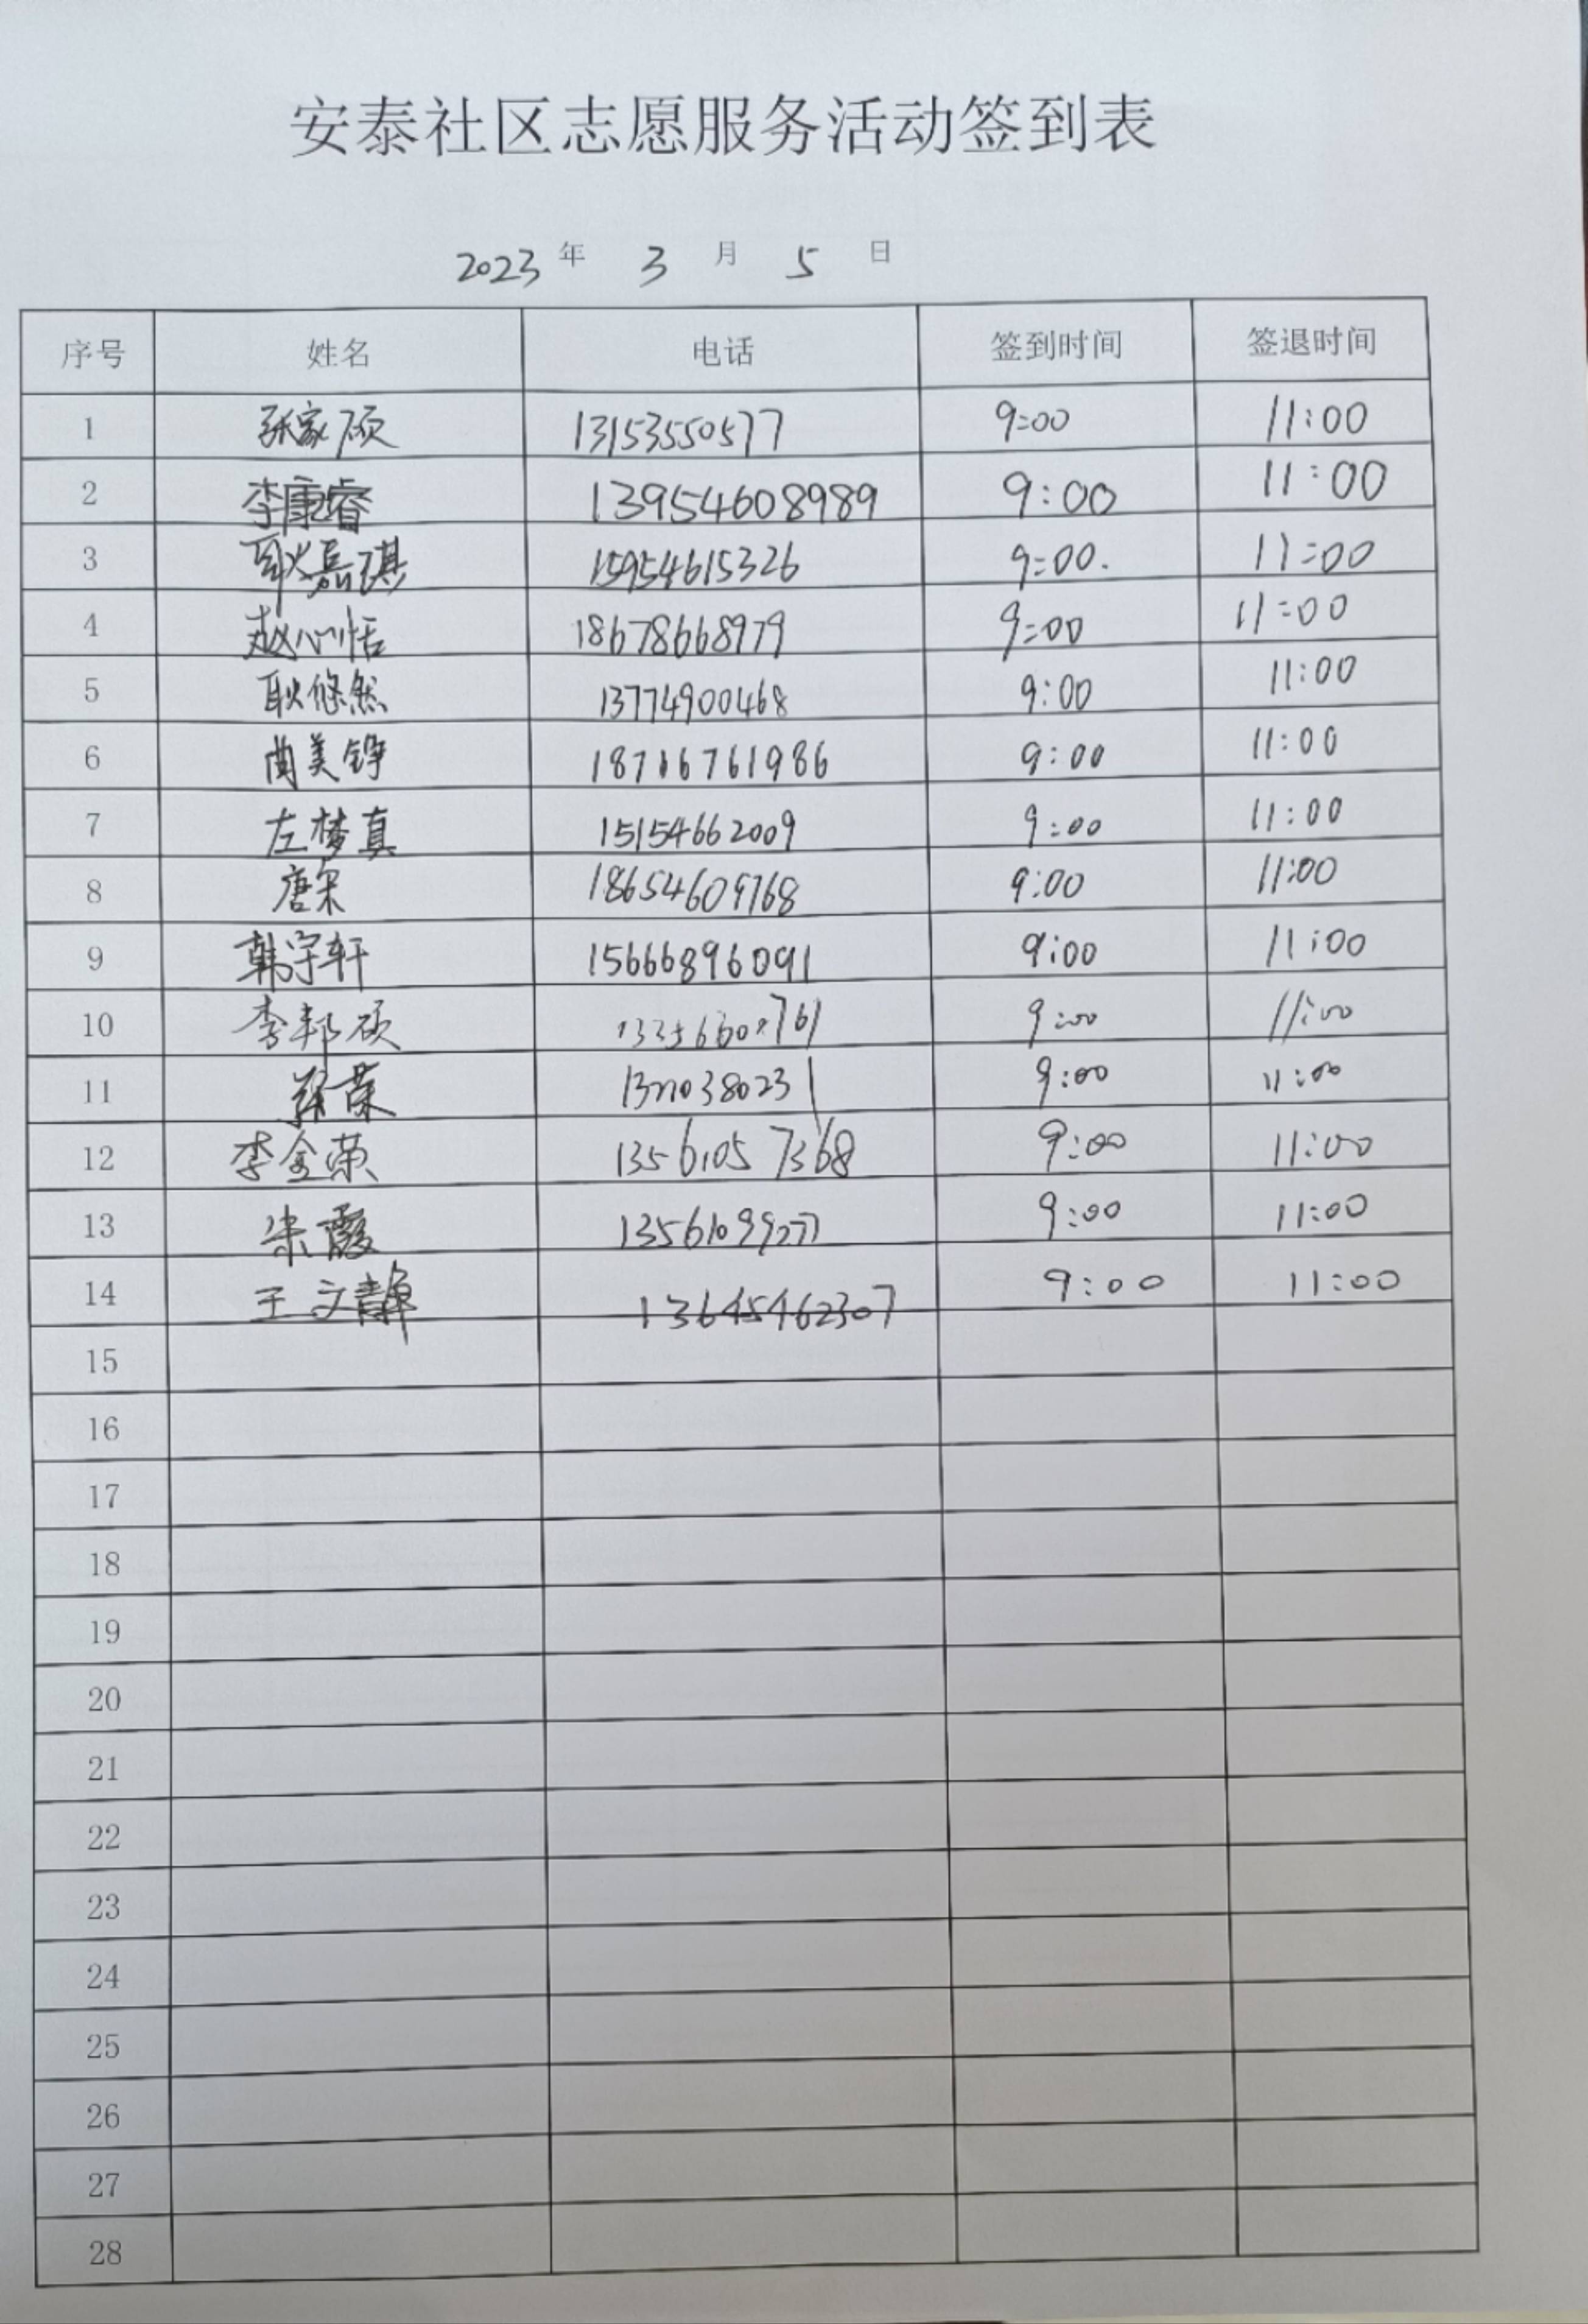 安泰社区志愿服务活动签到表
2023 年 3 月 5 日
序号 姓名 电话 签到时间 签退时间
1 张家硕 13153550577 9:00 11:00
2 李康睿 13954608989 9:00 11:00
3 耿嘉琪 15954615326 9:00. 11:00
4 赵心恬 18678668979 9:00 11:00
5 耿悠然 13774900468 9:00 11:00
6 曲美铮 18716761986 9:00 11:00
7 左梦真 15154662009 9:00 11:00
8 唐 18654609768 9:00 11:00
9 韩宇轩 15666896091 9:00 11:00
10 李邦硕 9:00 11:00
11 9:00 11:00
12 李金荣 13561057368 9:00 11:00
13 朱霞 13561099277 9:00 11:00
14 王文静 13645462307 9:00 11:00
15
16
17
18
19
20
21
22
23
24
25
26
27
28